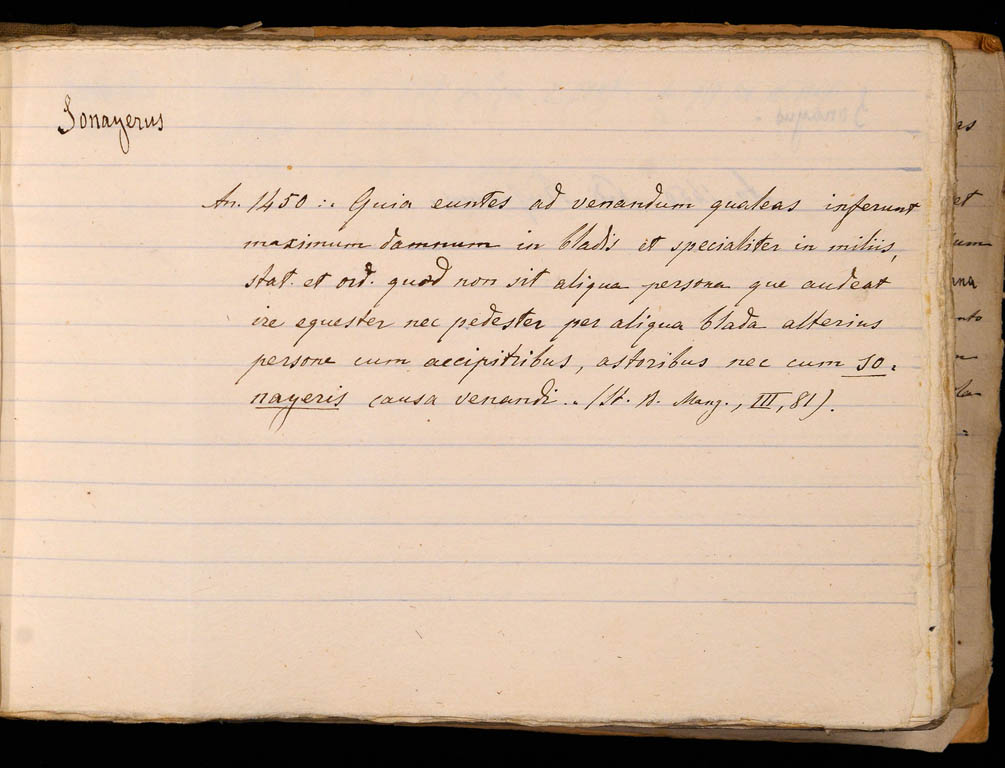 Sonayerus
An. 1450 :. Quia euntes ad venandum qualeas inferunt
maximum damnum in bladis et specialiter in miliis,
stat. et ord. quod non sit aliqua persona que audeat
ire equester nec pedester per aliqua blada alterius
persone cum accipitribus, astoribus nec cum so=
nayeris causa venandi .. (St. B. Mang., III, 81).